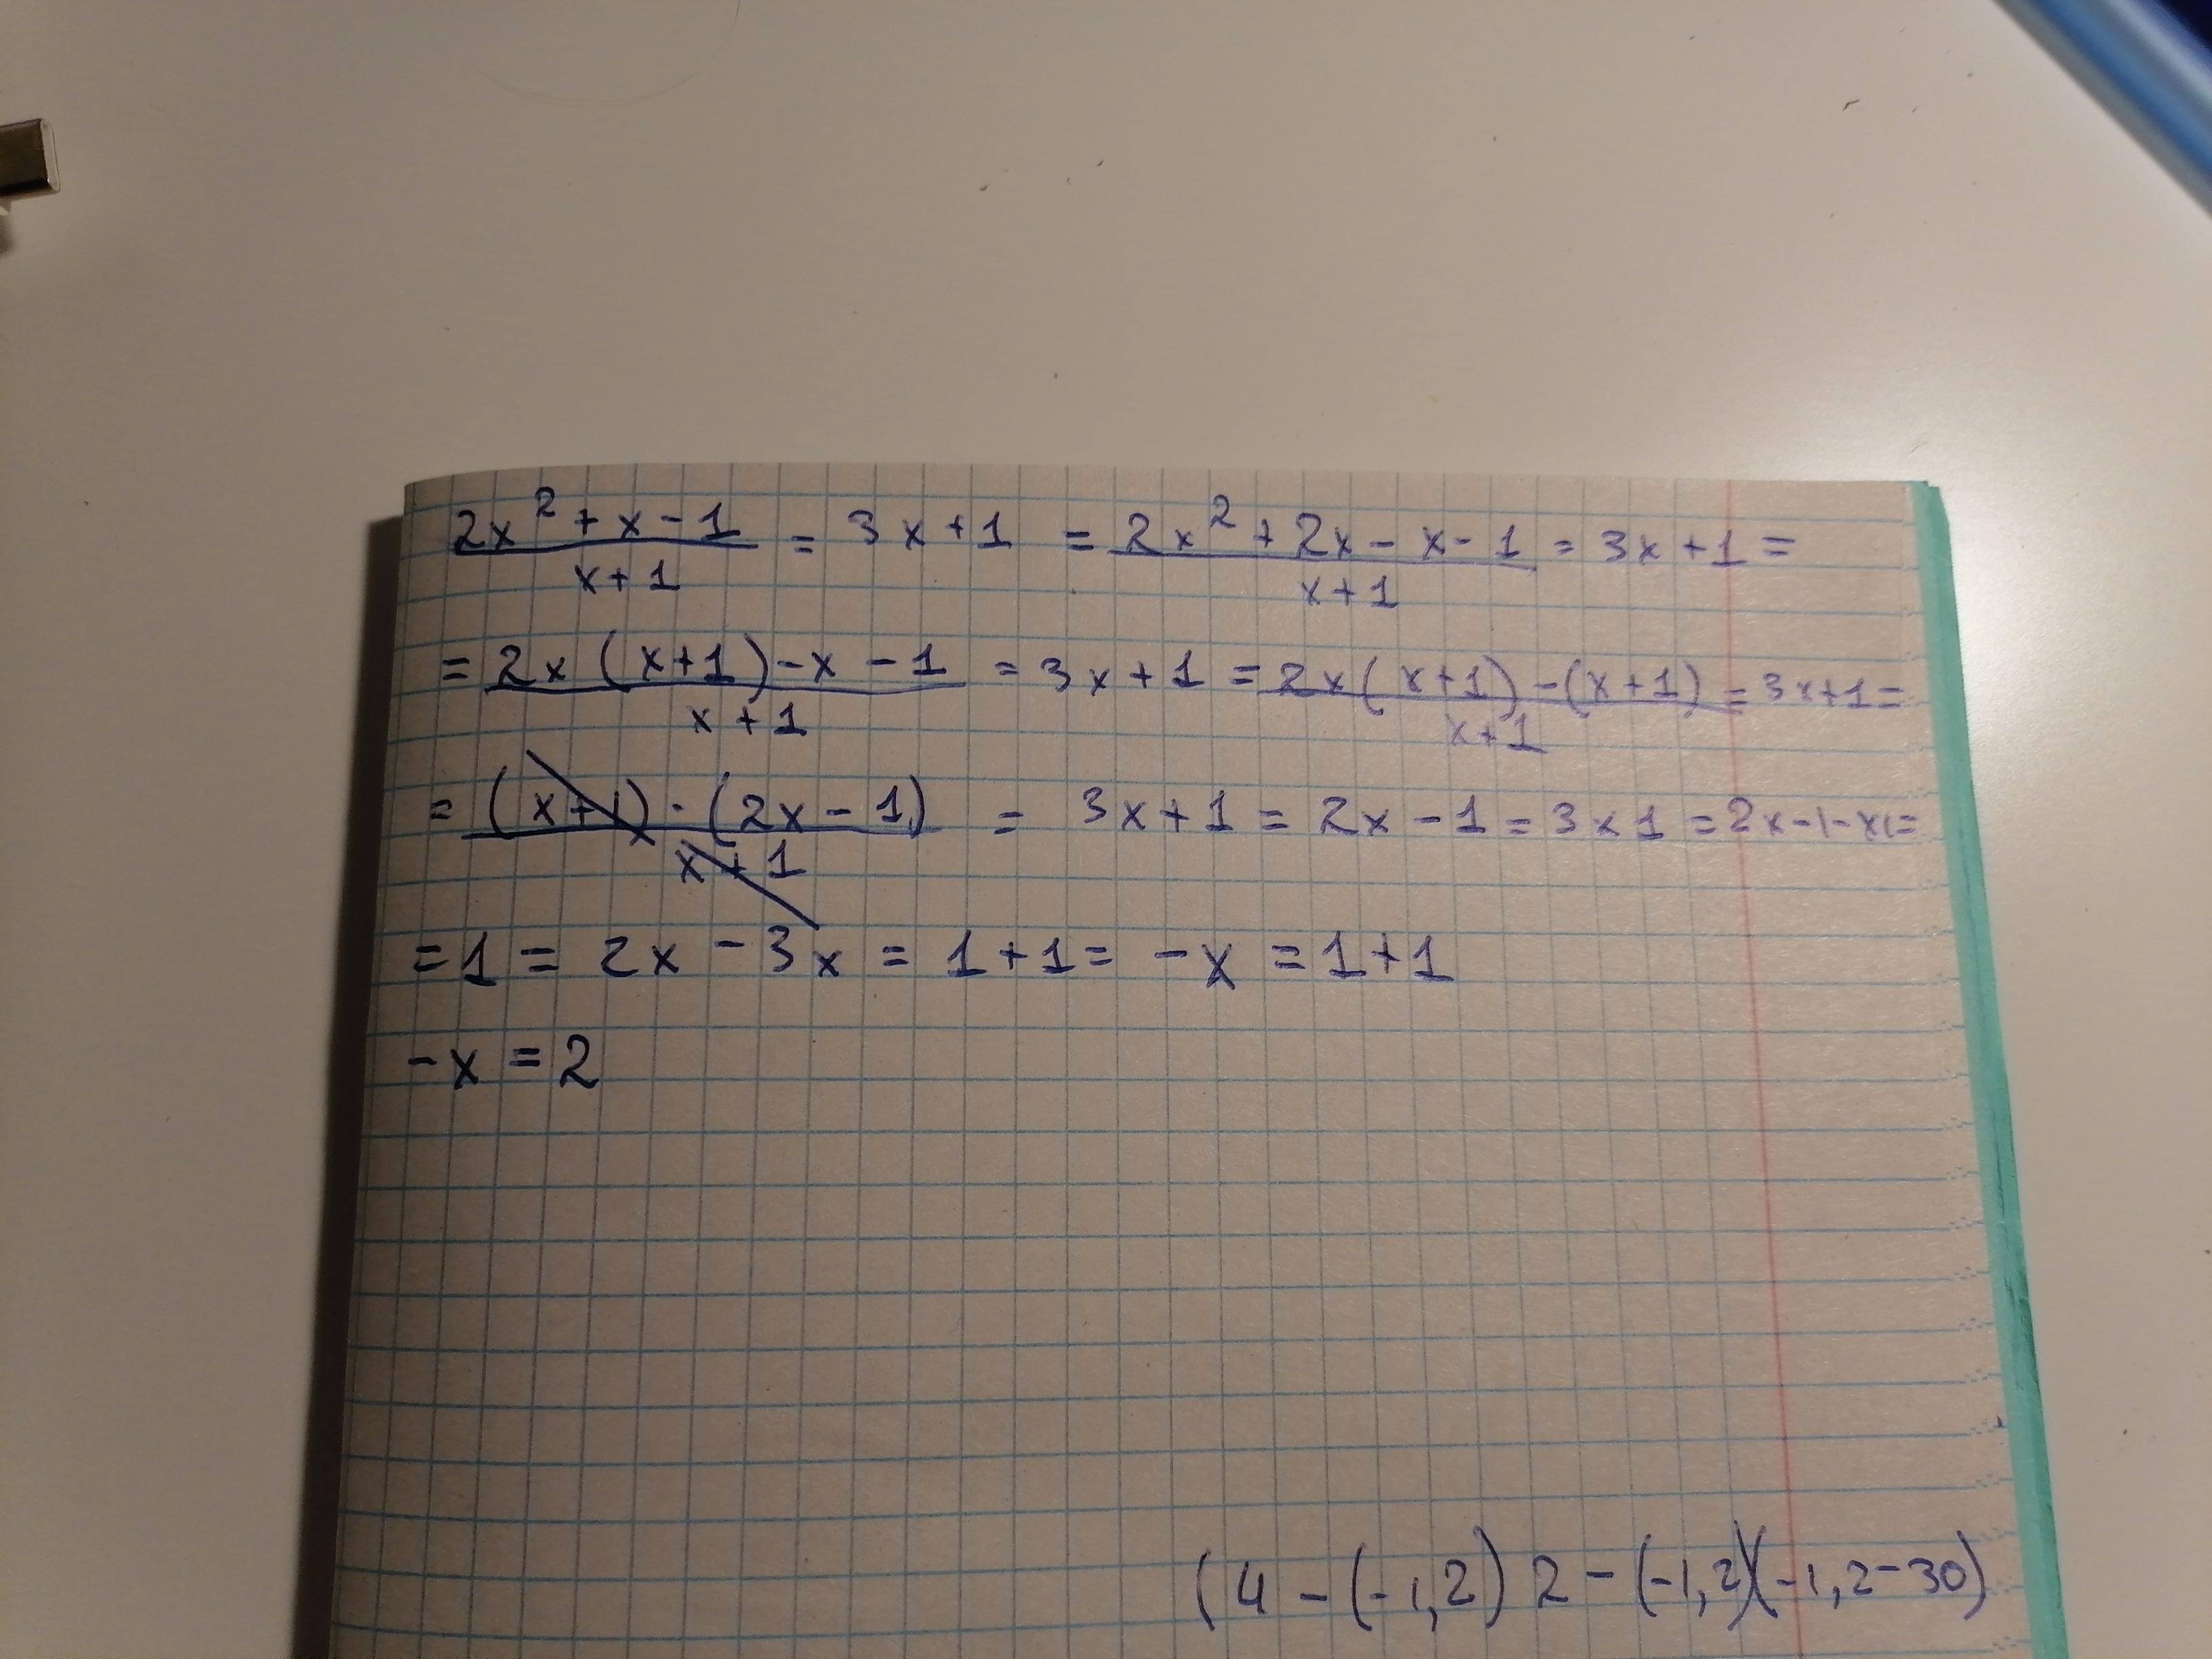 2x² + x - 1 / x + 1 = 3x + 1 = 2x² + 2x - x - 1 / x + 1 = 3x + 1 =
= 2x (x+1) - x - 1 / x + 1 = 3x + 1 = 2x (x+1) - (x+1) / x+1 = 3x+1 =
= (x+1) · (2x - 1) / x + 1 = 3x + 1 = 2x - 1 = 3x1 = 2x - 1 - x1 =
= 1 = 2x - 3x = 1 + 1 = -x = 1 + 1
-x = 2
(4 - (-1,2) 2 - (-1,2)(-1,2-30)